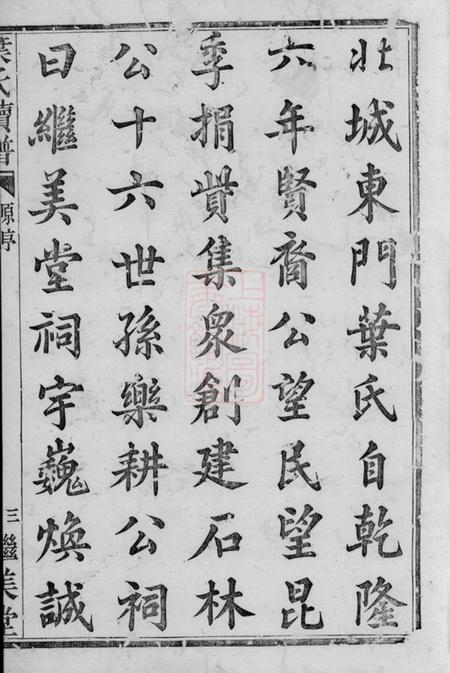 北城東門葉氏自乾隆
六年賢裔公望民望昆
季捐貲集衆創建石林
公十六世孫樂耕公祠
曰繼美堂祠宇巍煥誠
葉氏續譜
源亭
三
繼美堂